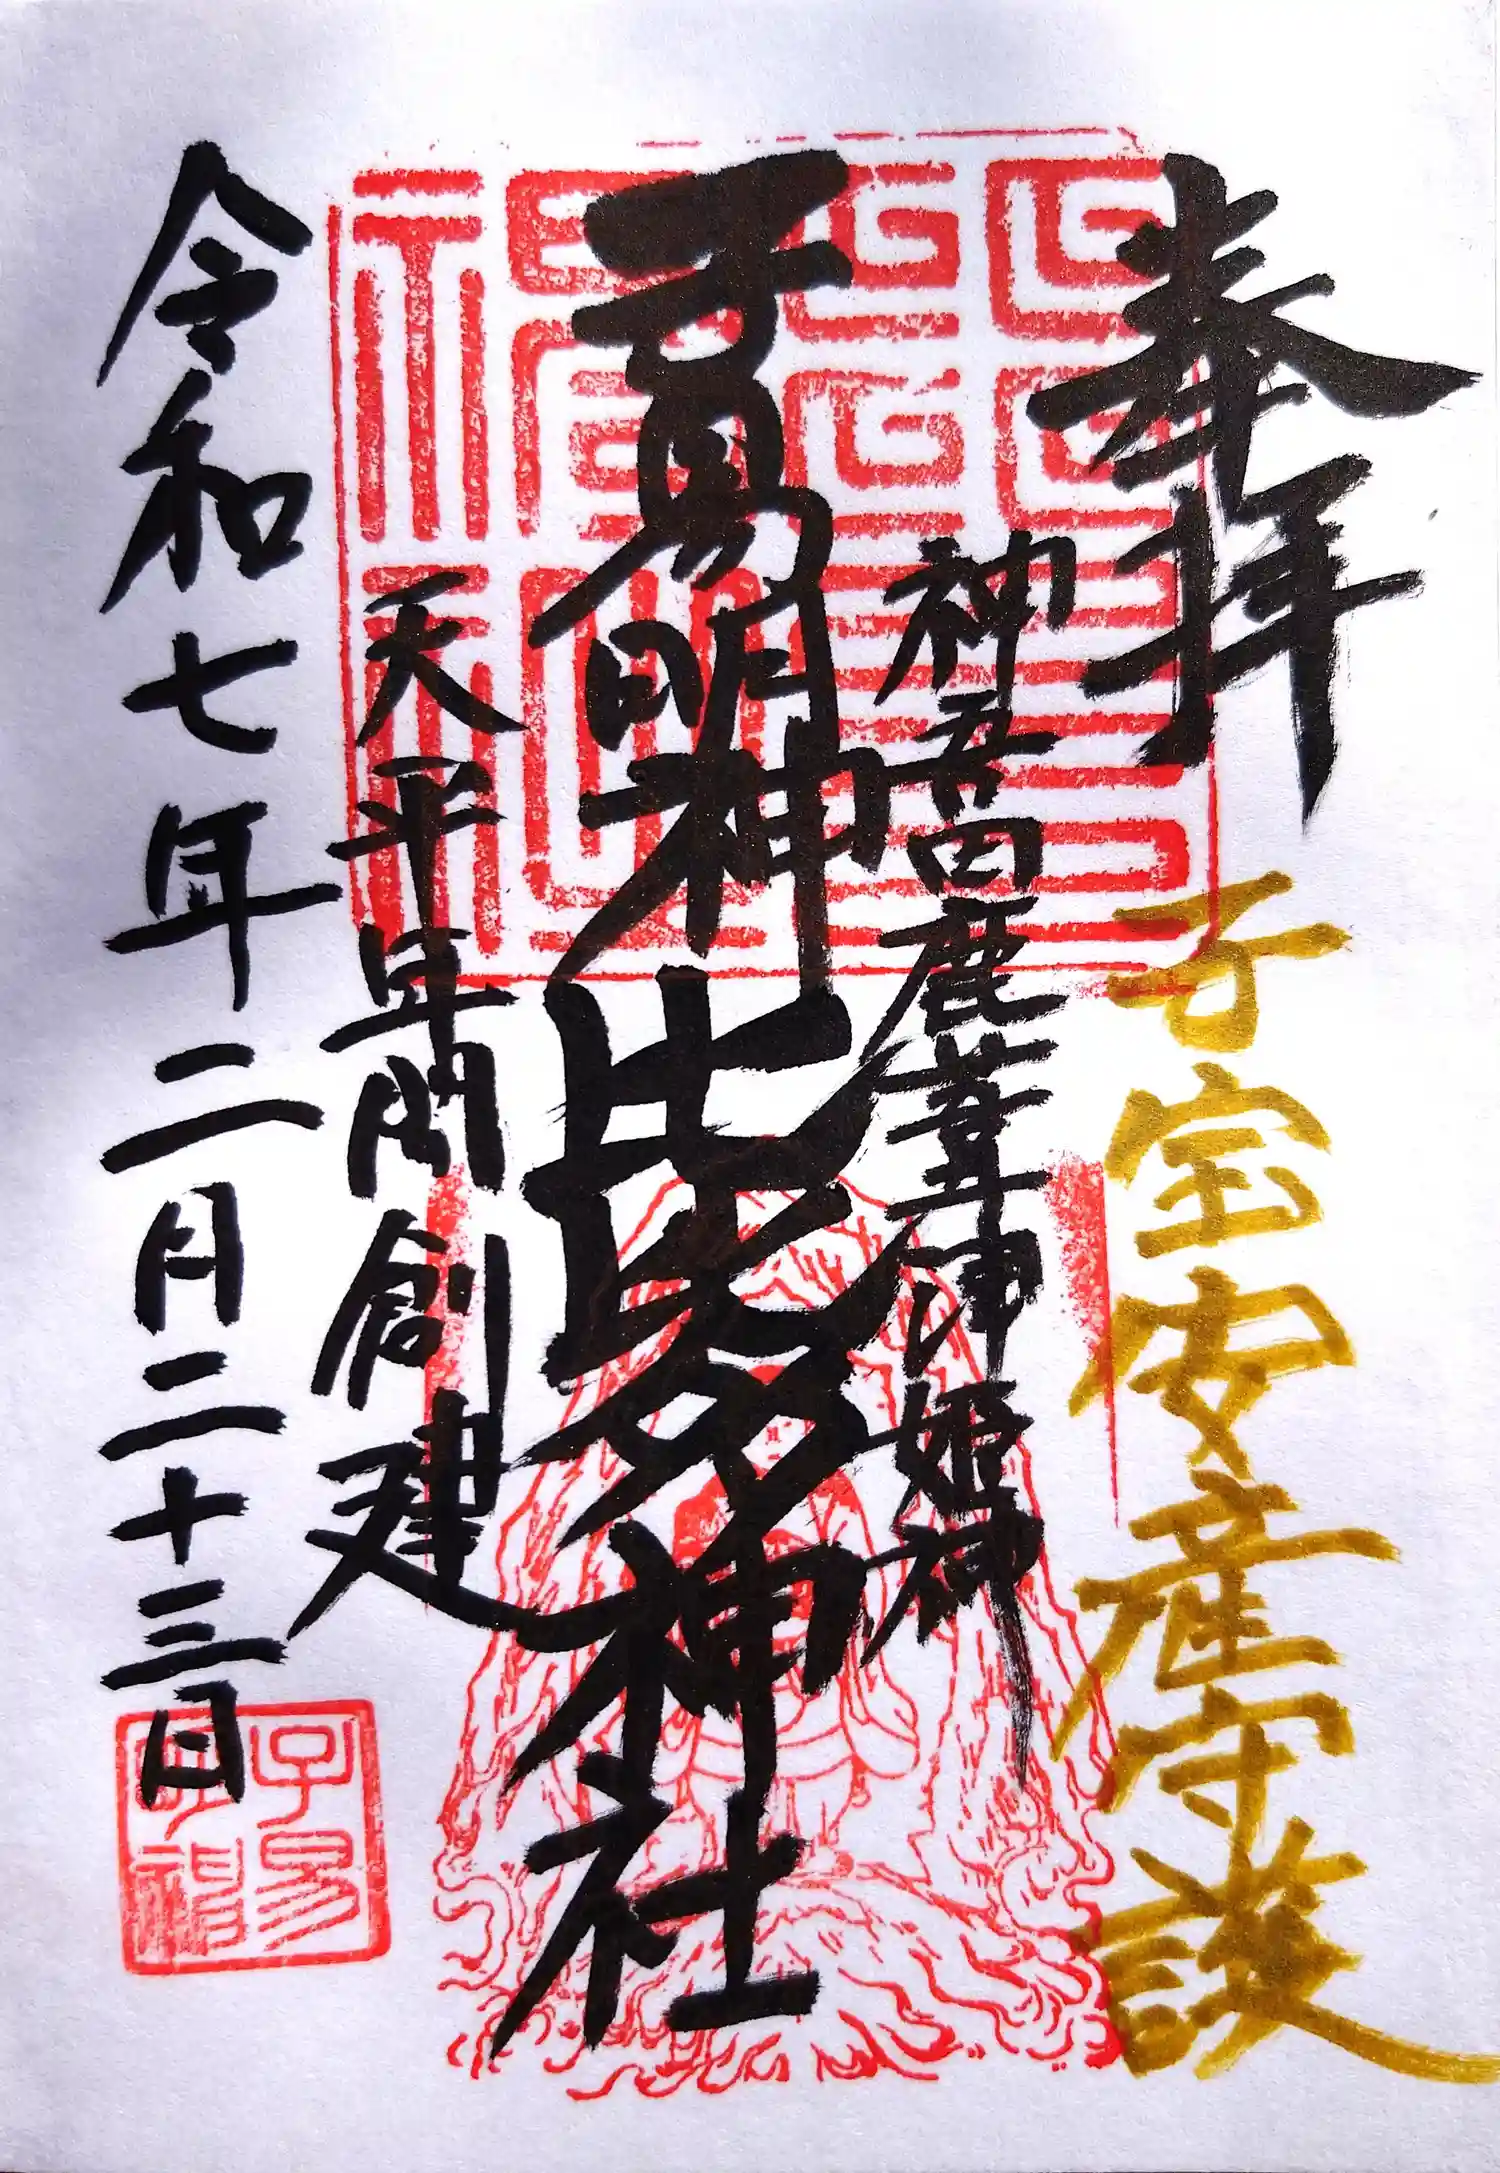 奉拝
子宝安産守護
神吾田鹿葦津姫神
子易明神比比多神社
天平年間創建
令和七年二月二十三日
子易
明神